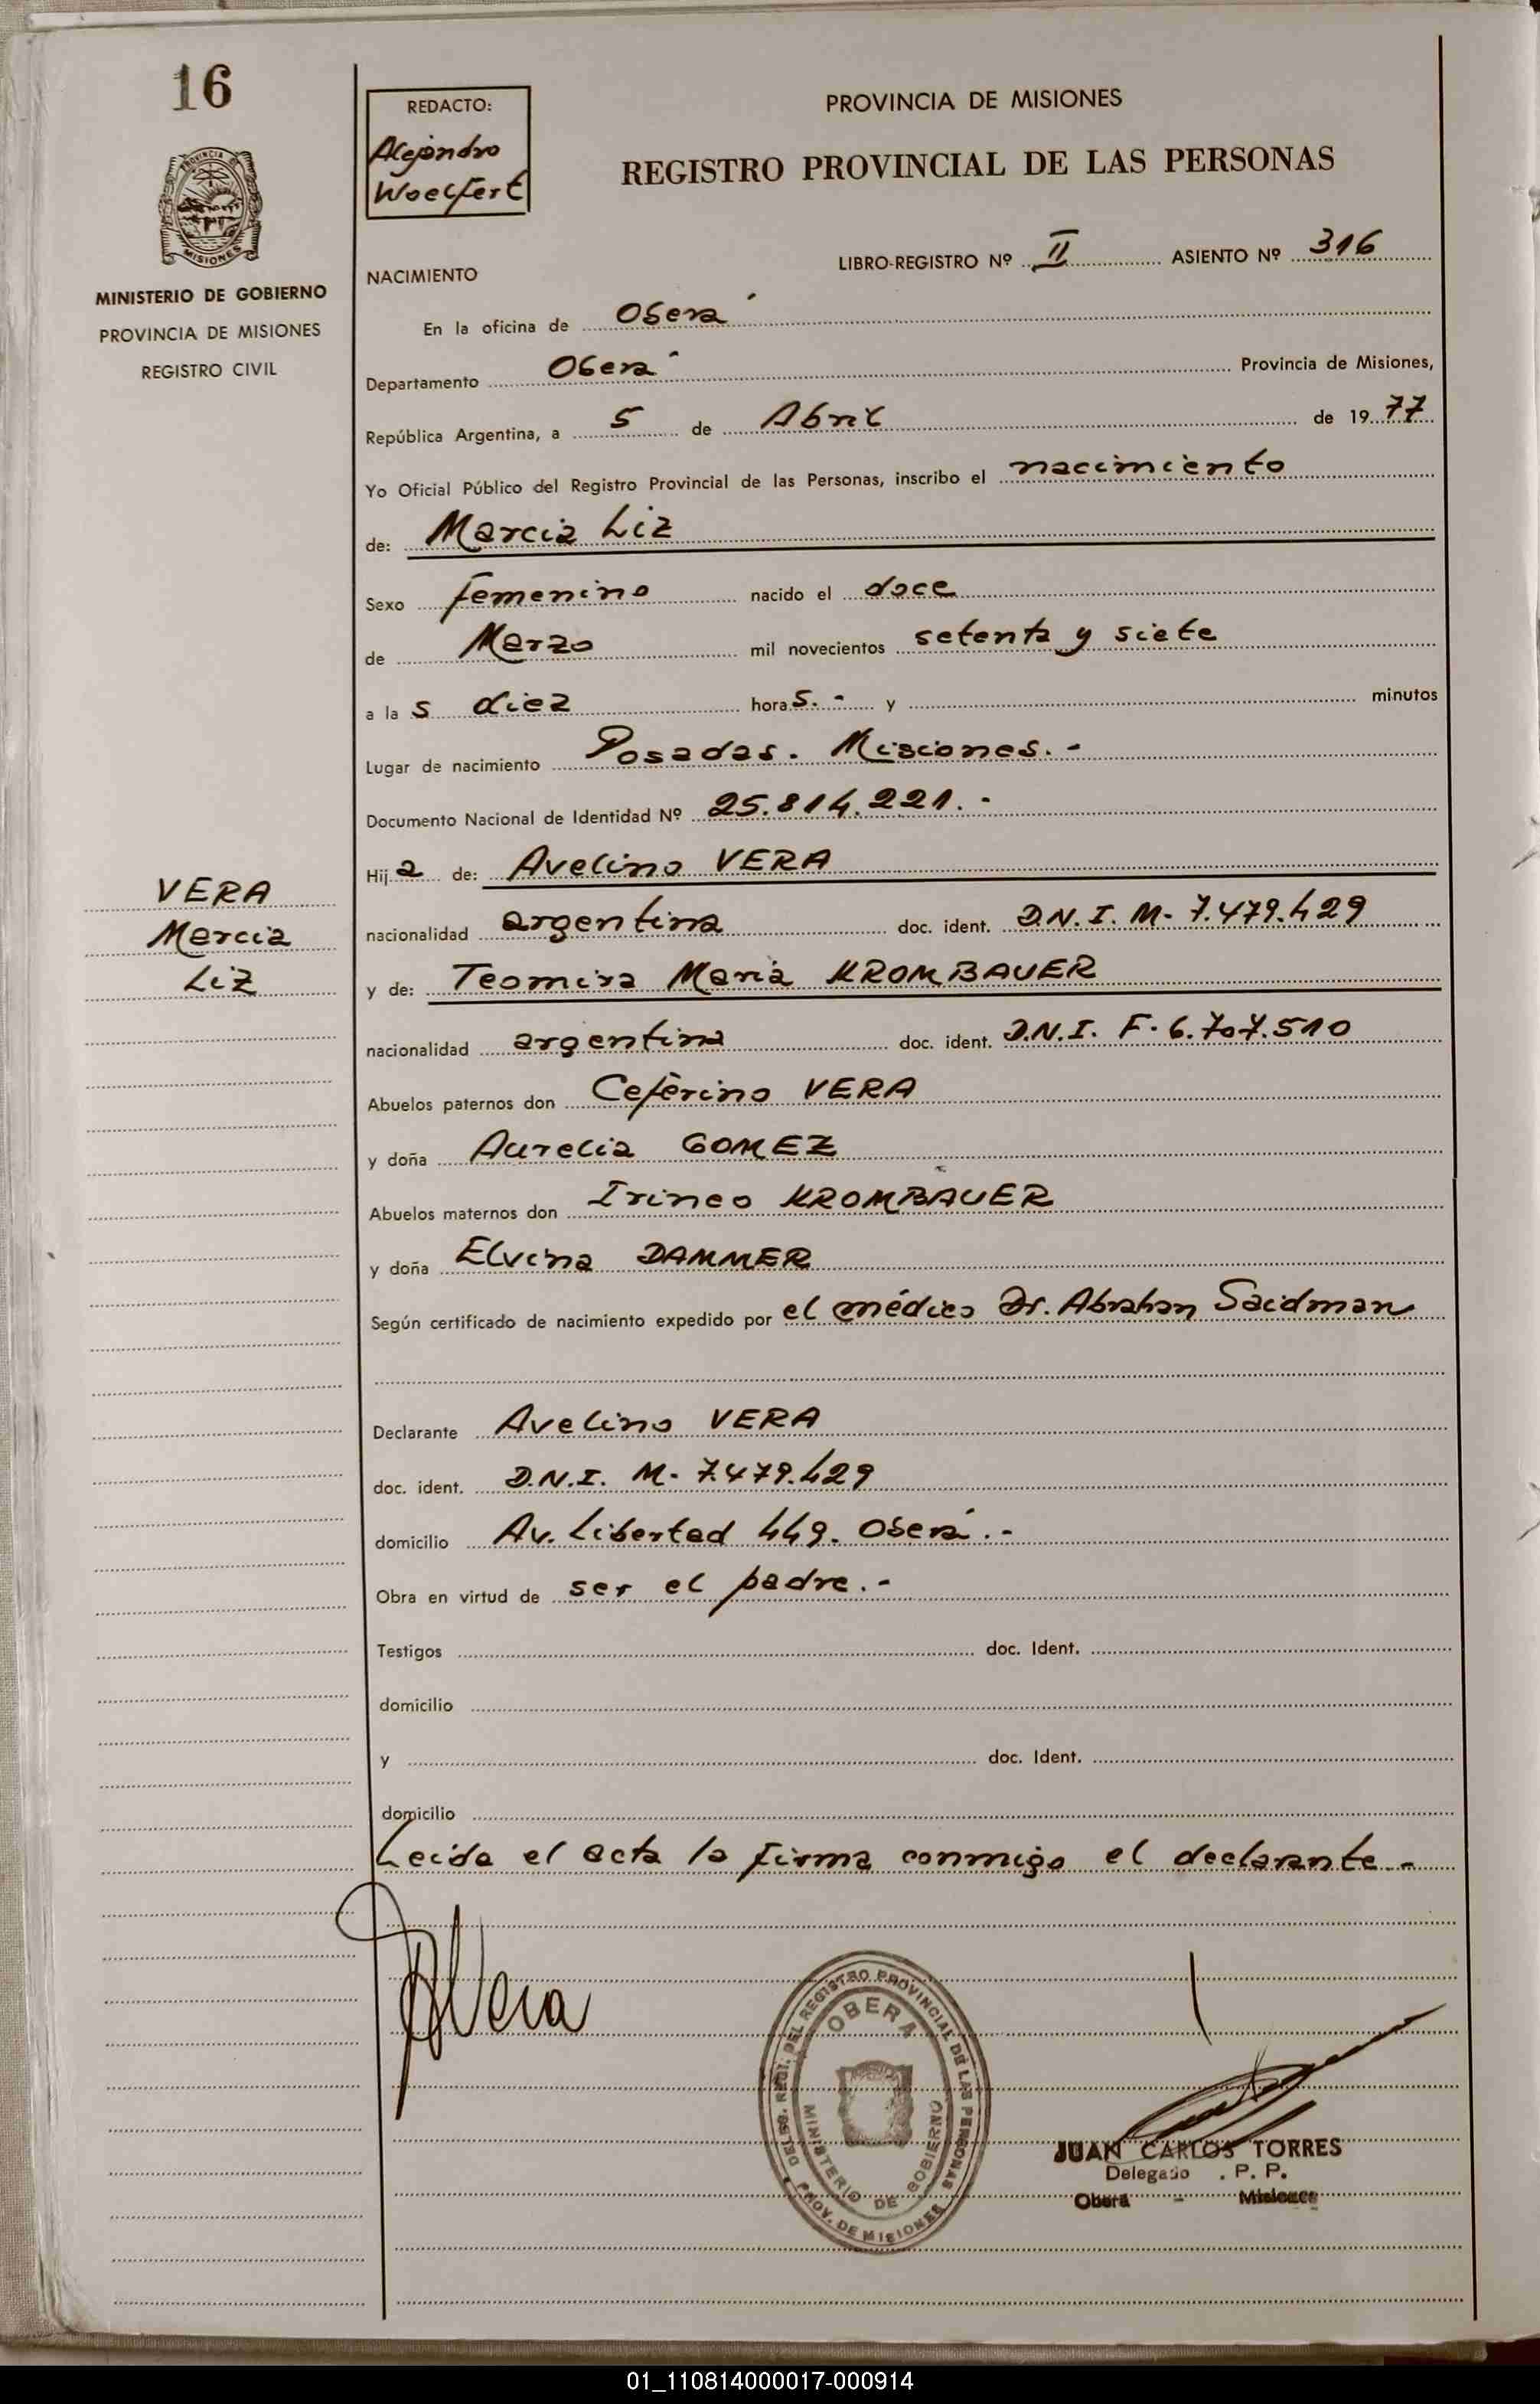 16
REDACTO:
Alejandro
Woelfert
PROVINCIA DE MISIONES
REGISTRO PROVINCIAL DE LAS PERSONAS
PROVINCIA DE
MISIONES
MINISTERIO DE GOBIERNO
PROVINCIA DE MISIONES
REGISTRO CIVIL
LIBRO-REGISTRO Nº II ASIENTO Nº 316
NACIMIENTO
En la oficina de Oberá
Departamento Oberá Provincia de Misiones,
República Argentina, a 5 de Abril de 1977
Yo Oficial Público del Registro Provincial de las Personas, inscribo el nacimiento
de: Marcia Liz
Sexo femenino nacido el doce
de Marzo mil novecientos setenta y siete
a las diez horas.- y minutos
Lugar de nacimiento Posadas. Misiones.-
Documento Nacional de Identidad Nº 25.814.221.-
Hija de: Avelino VERA
VERA
Marcia
Liz
nacionalidad argentina doc. ident. D.N.I. M- 7.479.429
y de: Teomira Maria KROMBAUER
nacionalidad argentina doc. ident. D.N.I. F- 6.707.510
Abuelos paternos don Ceferino VERA
y doña Aurelia GOMEZ
Abuelos maternos don Irineo KROMBAUER
y doña Elvina DAMMER
Según certificado de nacimiento expedido por el médico Dr. Abrahan Saidman
Declarante Avelino VERA
doc. ident. D.N.I. M- 7.479.429
domicilio Av. Libertad 449. Oberá.-
Obra en virtud de ser el padre.-
Testigos doc. Ident.
domicilio
y doc. Ident.
domicilio
Leida el acta la firma conmigo el declarante.-
AVera
DELEG. REGT. DEL REGISTRO PROVINCIAL DE LAS PERSONAS
OBERA
MINISTERIO DE GOBIERNO
PROV. DE MISIONES
JUAN CARLOS TORRES
Delegado . P. P.
Oberá - Misiones
01_110814000017-000914